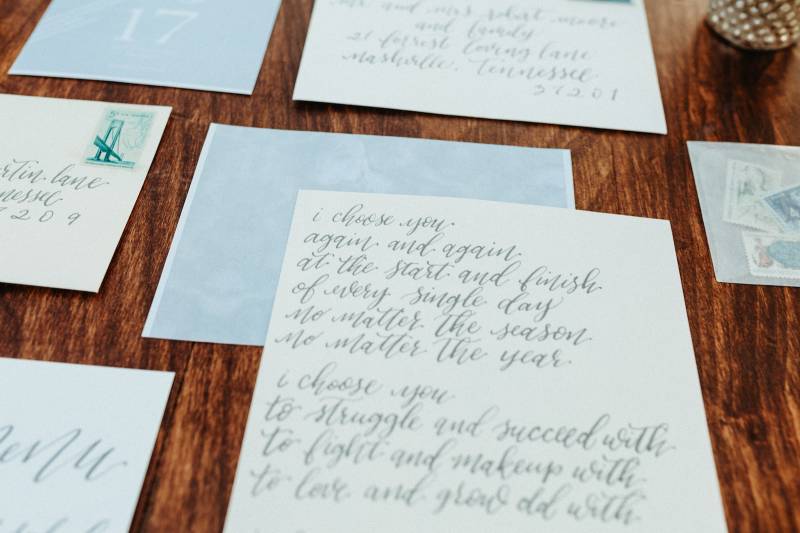 17
mr. and mrs. robert moore
and family
21 forrest loving lane
nashville, tennessee
37201
lane
209
i choose you
again and again
at the start and finish
of every single day
no matter the season
no matter the year
i choose you
to struggle and succeed with
to fight and makeup with
to love and grow old with
menu